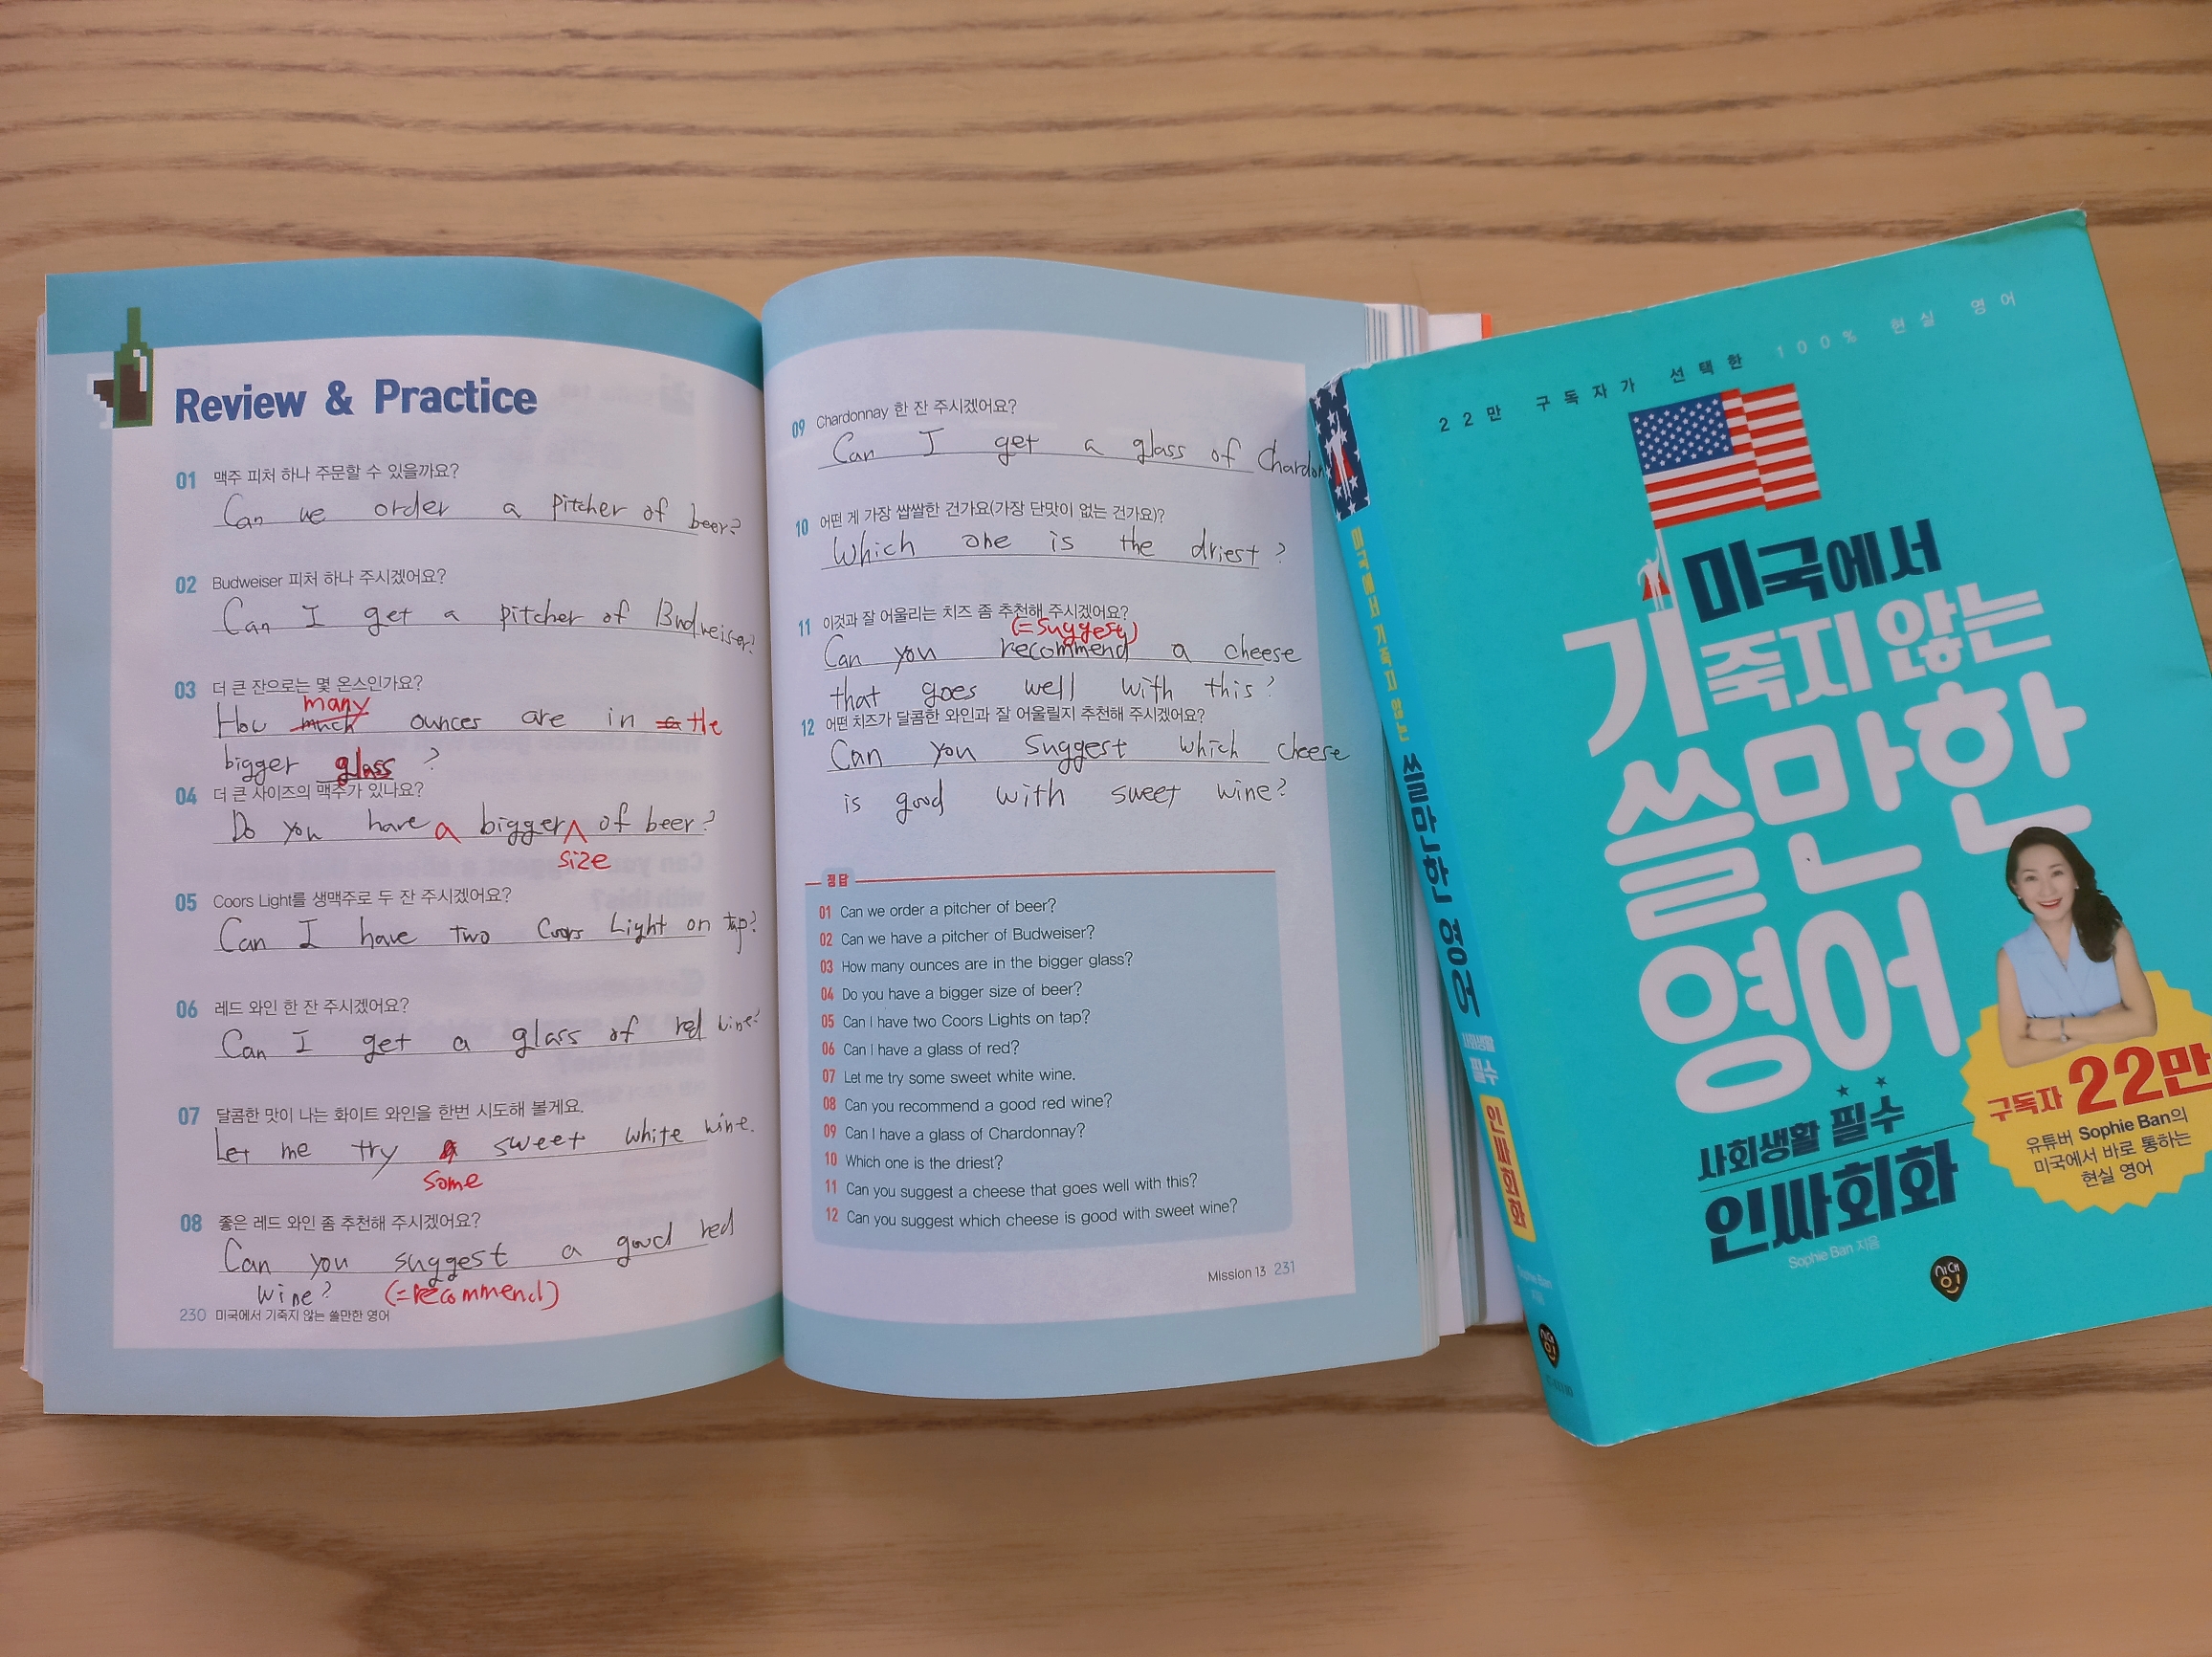 Review & Practice
01 맥주 피처 하나 주문할 수 있을까요?
Can we order a pitcher of beer?
02 Budweiser 피처 하나 주시겠어요?
Can I get a pitcher of Budweiser?
03 더 큰 잔으로는 몇 온스인가요?
many
How much ounces are in a the
bigger glass ?
04 더 큰 사이즈의 맥주가 있나요?
Do you have a bigger ^ of beer?
size
05 Coors Light를 생맥주로 두 잔 주시겠어요?
Can I have two Coors Light on tap?
06 레드 와인 한 잔 주시겠어요?
Can I get a glass of red wine?
07 달콤한 맛이 나는 화이트 와인을 한번 시도해 볼게요.
Let me try sweet white wine.
some
08 좋은 레드 와인 좀 추천해 주시겠어요?
Can you suggest a good red
wine? (=recommend)
230 미국에서 기죽지 않는 쓸만한 영어
09 Chardonnay 한 잔 주시겠어요?
Can I get a glass of Chardon
10 어떤 게 가장 쌉쌀한 건가요(가장 단맛이 없는 건가요)?
Which one is the driest?
11 이것과 잘 어울리는 치즈 좀 추천해 주시겠어요?
(=suggest)
Can you recommend a cheese
that goes well with this?
12 어떤 치즈가 달콤한 와인과 잘 어울릴지 추천해 주시겠어요?
Can you suggest which cheese
is good with sweet wine?
정답
01 Can we order a pitcher of beer?
02 Can we have a pitcher of Budweiser?
03 How many ounces are in the bigger glass?
04 Do you have a bigger size of beer?
05 Can I have two Coors Lights on tap?
06 Can I have a glass of red?
07 Let me try some sweet white wine.
08 Can you recommend a good red wine?
09 Can I have a glass of Chardonnay?
10 Which one is the driest?
11 Can you suggest a cheese that goes well with this?
12 Can you suggest which cheese is good with sweet wine?
Mission 13 231
미국에서 기죽지 않는 쓸만한 영어 사회생활 필수 인싸회화
Sophie Ban 지음
22만 구독자가 선택한 100% 현실 영어
미국에서
기죽지 않는
쓸만한
영어
사회생활 필수
인싸회화
Sophie Ban 지음
구독자 22만
유튜버 Sophie Ban의
미국에서 바로 통하는
현실 영어